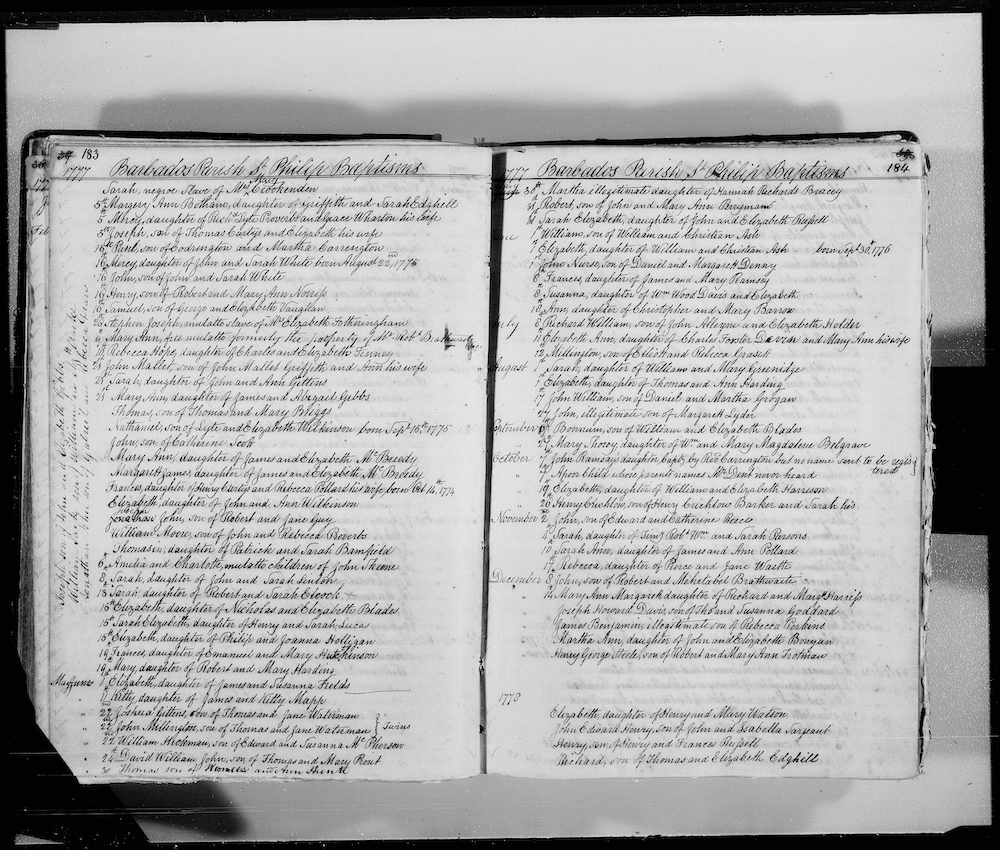 183
1777 Barbados Parish St Philip Baptisms
Sarah, negroe Slave of Mrs Mary Crookenden
5th Margery Ann Bothane, daughter of Griffeth and Sarah Edghill
5th daughter of Richd Lyte Proverbs and Grace Wharton his wife
5th Joseph, son of Thomas Curlys and Elizabeth his wife
16th Paul, son of Codrington and Martha Carrington
Mercy, daughter of John and Sarah White born August 22nd, 1775
John, son of John and Sarah White
19 Henry, son of Robert and Mary Ann Norriss
Samuel, son of George and Elizabeth Vaughan
Stephen Joseph, mulatto slave of Mrs Elizabeth Fotheringham
Mary Ann, free mulatto formerly the property of Mr Robt Brathwaite
Rebecca Hope, daughter of Charles and Elizabeth Fenney
John Mallet, son of John Mallet Griffeth and Ann his wife
25 Sarah, daughter of John and Ann Gittins
25 Mary Ann, daughter of James and Abigael Gibbs
Thomas, son of Thomas and Mary Briggs
Nathaniel, son of Lyte and Elizabeth Wilkinson born Sept 16th 1776
John, son of Catherine Scott
Mary Ann, daughter of James and Elizabeth Mc Breedy
Margaret James, daughter of James and Elizabeth Mc Breedy
Frances, daughter of Henry Curlys and Rebecca Pollard his wife, born Oct 14th, 1774
Elizabeth, daughter of John and Ann Wilkinson
John, son of Robert and Jane Guy
William Moore, son of John and Rebecca Proverbs
Thomasin, daughter of Patrick and Sarah Bamfield
6 Amelia and Charlotte, mulatto children of John Skeene
8 Sarah, daughter of John and Sarah Linton
18 Sarah, daughter of Robert and Sarah Elcock
16 Elizabeth, daughter of Nicholas and Elizabeth Blades
16 Sarah Elizabeth, daughter of Henry and Sarah Luca
16th Elizabeth, daughter of Philip and Joanna Holligan
19 Frances, daughter of Emanuel and Mary Hutchinson
19 Mary, daughter of Robert and Mary Harding
May June 1 Elizabeth, daughter of James and Susanna Fields
11 Kitty, daughter of James and Kitty Mapp
22 Joshua Gittens, son of Thomas and Jane Waterman
22 John Millington, son of Thomas and Jane Waterman } Twins
22 William Hickman, son of Edward and Susanna Mc Pherson
24 David William John, son of Thomas and Mary Rout
Thomas, son of and Ann
184
1777 Barbados Parish St Philip Baptisms
30th Martha illegitimate daughter of Hannah Richards Bracey
Robert, son of John and Mary Ann Perryman
Sarah Elizabeth, daughter of John and Elizabeth Russell
June William, son of William and Christian Ash
Elizabeth, daughter of William and Christian Ash born Sept 30th, 1776
1 John Nurse, son of Daniel and Margaret Denny
6 Frances, daughter of James and Mary Ramsay
8 Susanna, daughter of Wm Wood Davis and Elizabeth
18 Ann, daughter of Christopher and Mary Barrow
July 8 Richard William, son of John Alleyne and Elizabeth Holder
11 Elizabeth Ann, daughter of Charles Forster Davis and Mary Ann his wife
12 Millington, son of Eliot and Rebecca Grassett
August Sarah, daughter of William and Mary Greenidge
Elizabeth, daughter of Thomas and Ann Harding
17 John William, son of Daniel and Martha Grogan
27 John, illegitimate son of Margaret Lyder
September 6 Bonnum, son of William and Elizabeth Blades
29 Mary Piercy, daughter of Wm and Mary Magdalene Belgrave
October 7 John Ramsay's daughter Capt by Revd Carrington but no name sent to be registered
7 Upon Child whose parents names Mr Dent never heard
19 Elizabeth, daughter of William and Elizabeth Harrison
20 Henry Crichlow, son of Henry Crichlow Barker and Sarah his
November 2 John, son of Edward and Catherine Reece
5 Sarah, daughter of Robt Wm and Sarah Persons
10 Sarah Ann, daughter of James and Ann Pollard
17 Rebecca, daughter of Pierce and Jane Waithe
December 8 John, son of Robert and Mehetabel Brathwaite
14 Mary Ann Margaret daughter of Richard and Margt Harriss
Joseph Howard Davis, son of Thos and Susanna Goddard
James Benjamin, illegitimate son of Rebecca Perkins
Martha Ann, daughter of John and Elizabeth Bovyan
Henry George Steele, son of Robert and Mary Ann Trotman
1778
Elizabeth, daughter of Henry and Mary Watson
John Edward Henry, son of John and Isabella Sargeant
Henry, son of Henry and Frances Russell
Richard, son of Thomas and Elizabeth Edghill